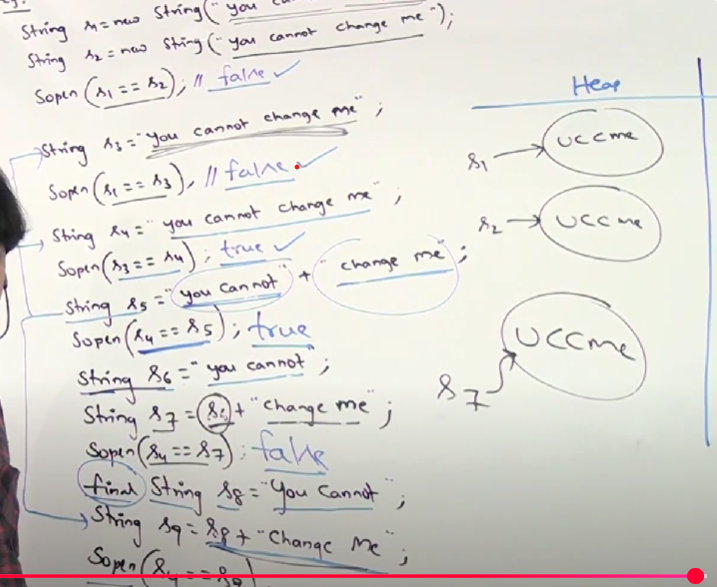 String s1 = new String("you
String s2 = new String("you cannot change me");
Sopln(s1 == s2); // false ✓
String s3 = "you cannot change me";
Sopln(s1 == s3), // false ✓
String s4 = "you cannot change me";
Sopln(s3 == s4); true ✓
String s5 = "you cannot" + "change me";
Sopln(s4 == s5); true
String s6 = "you cannot";
String s7 = s6 + "change me";
Sopln(s4 == s7); false
final String s8 = "You Cannot";
String s9 = s8 + "Change Me";
Sopln(s4 == s9)
Heap
s1 → UCCme
s2 → UCCme
s7 → UCCme